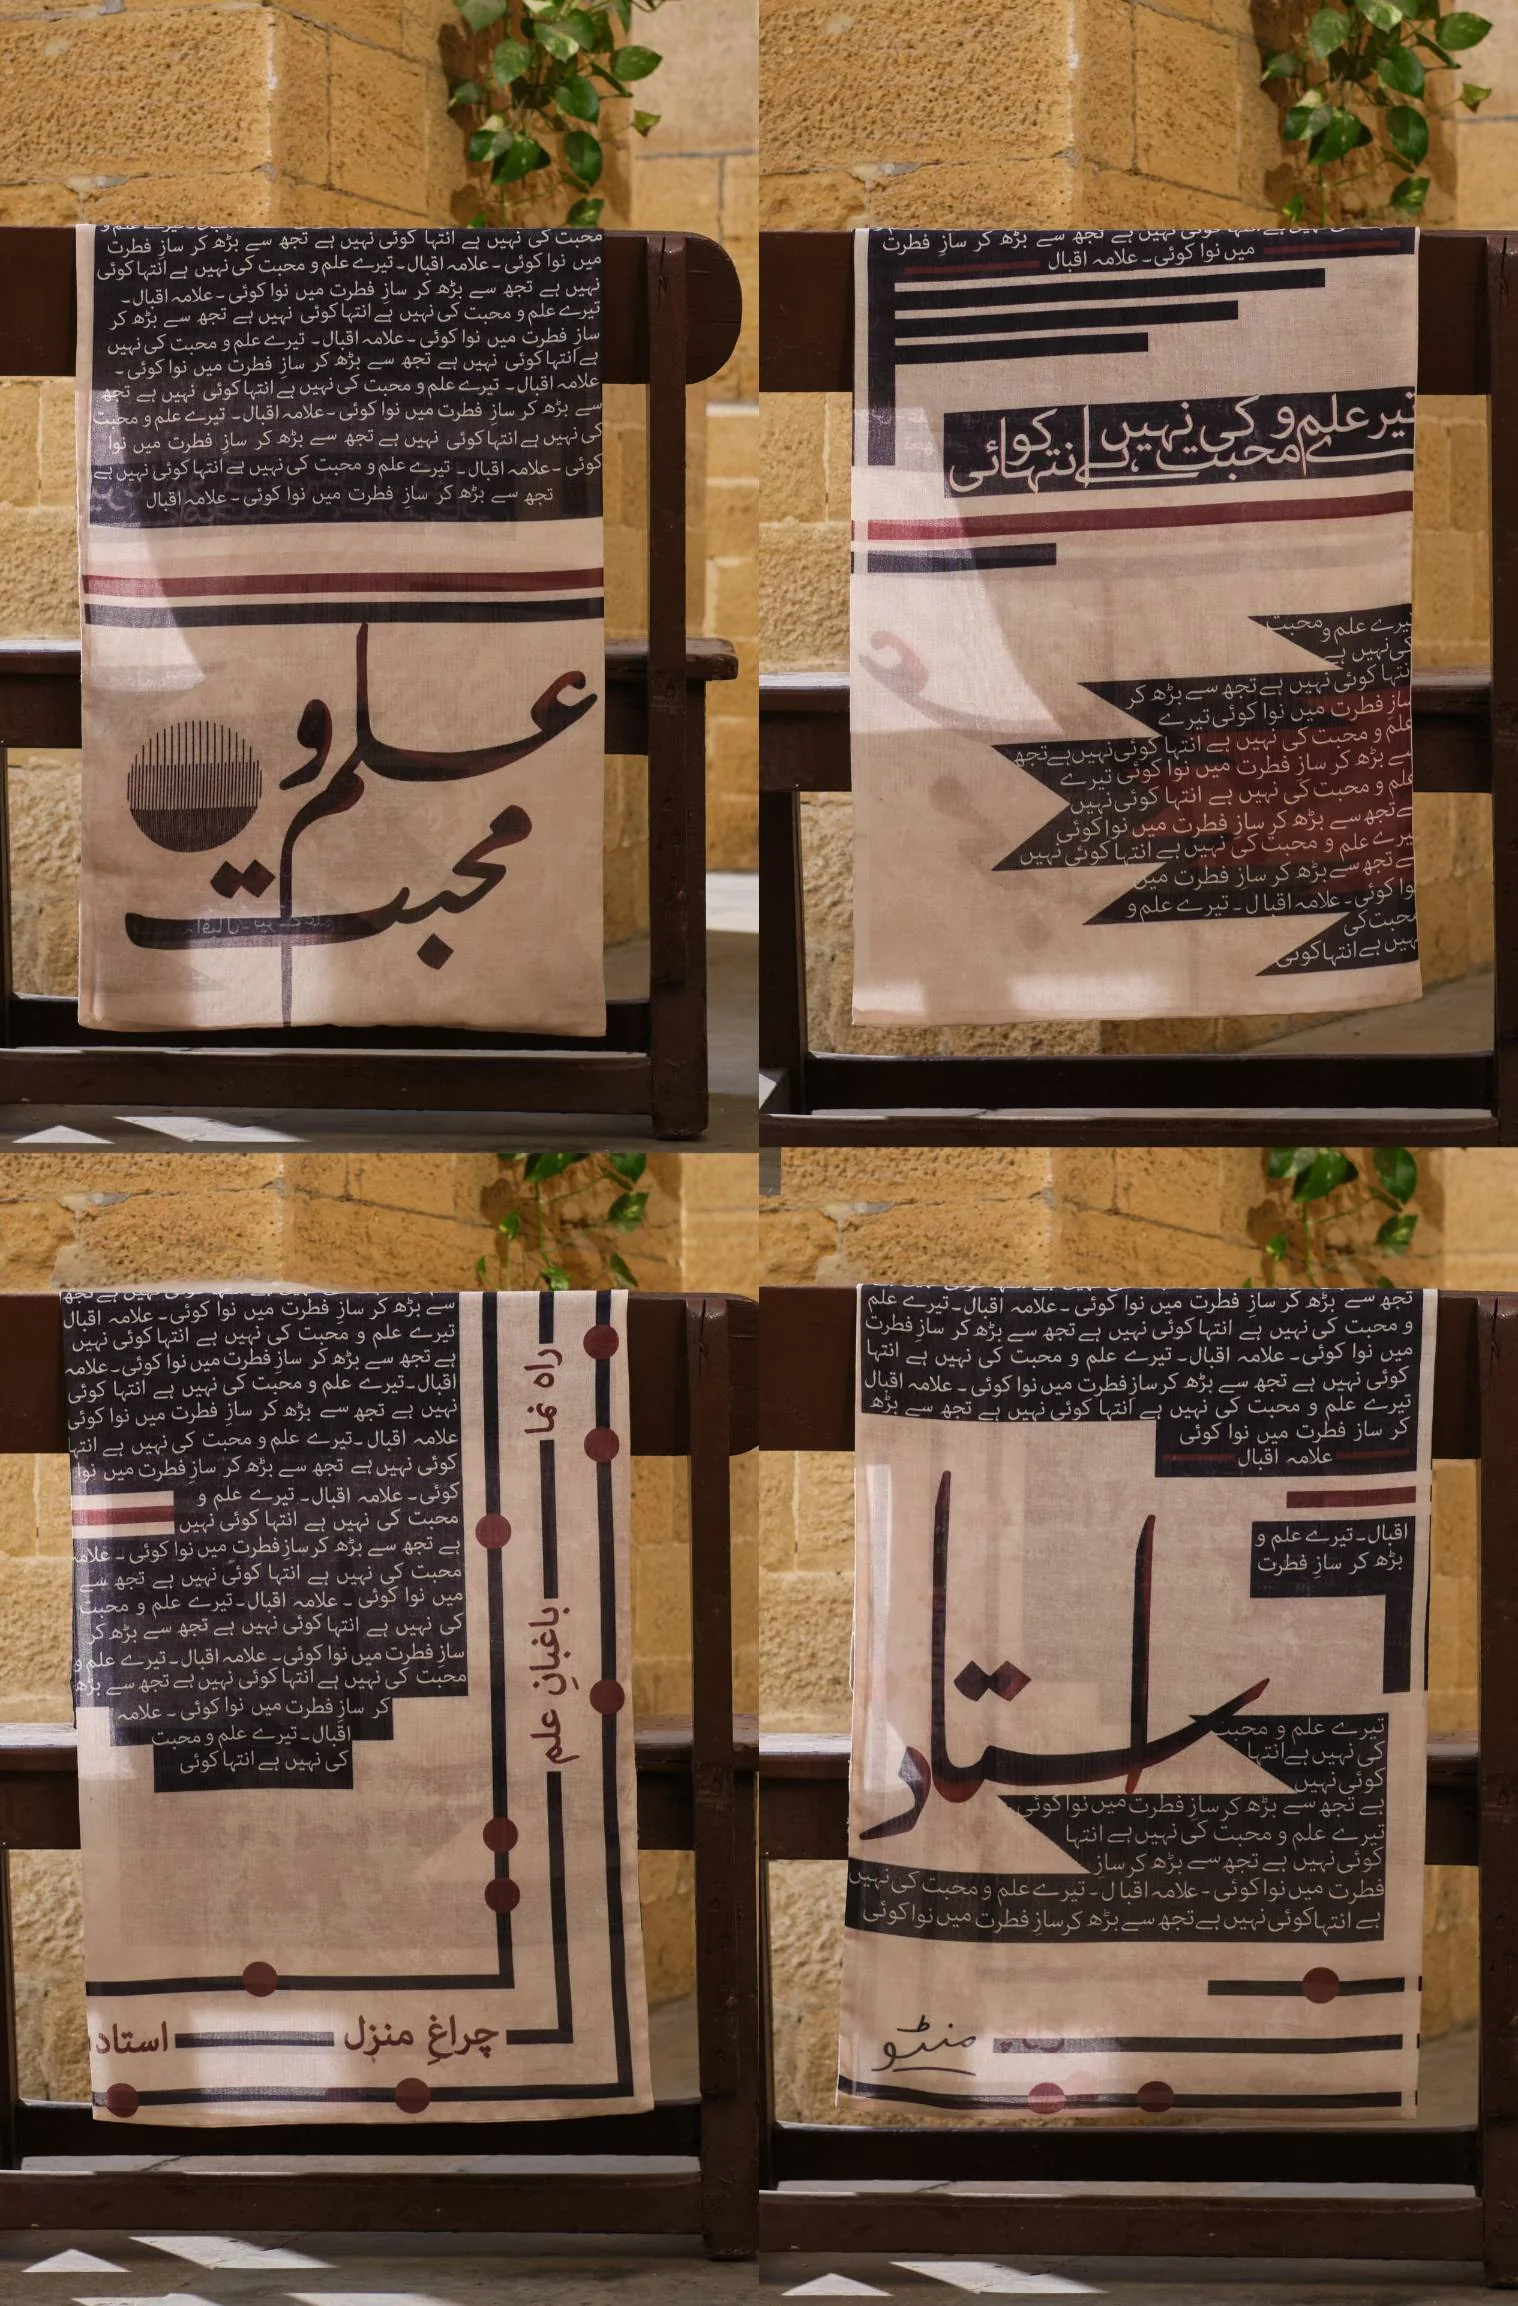 محبت کی نہیں ہے انتہا کوئی نہیں ہے تجھ سے بڑھ کر سازِ فطرت
میں نوا کوئی ۔ علامہ اقبال ۔ تیرے علم و محبت کی نہیں ہے انتہا کوئی
نہیں ہے تجھ سے بڑھ کر سازِ فطرت میں نوا کوئی ۔ علامہ اقبال ۔
تیرے علم و محبت کی نہیں ہے انتہا کوئی نہیں ہے تجھ سے بڑھ کر
سازِ فطرت میں نوا کوئی ۔ علامہ اقبال ۔ تیرے علم و محبت کی نہیں
ہے انتہا کوئی نہیں ہے تجھ سے بڑھ کر سازِ فطرت میں نوا کوئی ۔
علامہ اقبال ۔ تیرے علم و محبت کی نہیں ہے انتہا کوئی نہیں ہے تجھ
سے بڑھ کر سازِ فطرت میں نوا کوئی ۔ علامہ اقبال ۔ تیرے علم و محبت
کی نہیں ہے انتہا کوئی نہیں ہے تجھ سے بڑھ کر سازِ فطرت میں نوا
کوئی ۔ علامہ اقبال ۔ تیرے علم و محبت کی نہیں ہے انتہا کوئی نہیں ہے
تجھ سے بڑھ کر سازِ فطرت میں نوا کوئی ۔ علامہ اقبال
علم و
محبت
سے بڑھ کر سازِ فطرت
میں نوا کوئی ۔ علامہ اقبال
تیرے علم و محبت کی نہیں ہے انتہا کوئی
تیرے علم و محبت
کی نہیں ہے
انتہا کوئی نہیں ہے تجھ سے بڑھ کر
سازِ فطرت میں نوا کوئی تیرے
علم و محبت کی نہیں ہے انتہا کوئی نہیں ہے تجھ
سے بڑھ کر سازِ فطرت میں نوا کوئی تیرے
علم و محبت کی نہیں ہے انتہا کوئی نہیں
ہے تجھ سے بڑھ کر سازِ فطرت میں نوا کوئی
تیرے علم و محبت کی نہیں ہے انتہا کوئی نہیں
ہے تجھ سے بڑھ کر سازِ فطرت میں
نوا کوئی ۔ علامہ اقبال ۔ تیرے علم و
محبت کی
نہیں ہے انتہا کوئی
سے بڑھ کر سازِ فطرت میں نوا کوئی ۔ علامہ اقبال
تیرے علم و محبت کی نہیں ہے انتہا کوئی نہیں
ہے تجھ سے بڑھ کر سازِ فطرت میں نوا کوئی ۔ علامہ
اقبال ۔ تیرے علم و محبت کی نہیں ہے انتہا کوئی
نہیں ہے تجھ سے بڑھ کر سازِ فطرت میں نوا کوئی
علامہ اقبال ۔ تیرے علم و محبت کی نہیں ہے انتہا
کوئی نہیں ہے تجھ سے بڑھ کر سازِ فطرت میں نوا
کوئی ۔ علامہ اقبال ۔ تیرے علم و
محبت کی نہیں ہے انتہا کوئی نہیں
ہے تجھ سے بڑھ کر سازِ فطرت میں نوا کوئی ۔ علامہ
محبت کی نہیں ہے انتہا کوئی نہیں ہے تجھ سے
میں نوا کوئی ۔ علامہ اقبال ۔ تیرے علم و محبت
کی نہیں ہے انتہا کوئی نہیں ہے تجھ سے بڑھ کر
سازِ فطرت میں نوا کوئی ۔ علامہ اقبال ۔ تیرے علم و
محبت کی نہیں ہے انتہا کوئی نہیں ہے تجھ سے بڑھ
کر سازِ فطرت میں نوا کوئی ۔ علامہ
اقبال ۔ تیرے علم و محبت
کی نہیں ہے انتہا کوئی
راہ نما
باغبانِ علم
چراغِ منزل
استاد
تجھ سے بڑھ کر سازِ فطرت میں نوا کوئی ۔ علامہ اقبال ۔ تیرے علم
و محبت کی نہیں ہے انتہا کوئی نہیں ہے تجھ سے بڑھ کر سازِ فطرت
میں نوا کوئی ۔ علامہ اقبال ۔ تیرے علم و محبت کی نہیں ہے انتہا
کوئی نہیں ہے تجھ سے بڑھ کر سازِ فطرت میں نوا کوئی ۔ علامہ اقبال
تیرے علم و محبت کی نہیں ہے انتہا کوئی نہیں ہے تجھ سے بڑھ
کر سازِ فطرت میں نوا کوئی
علامہ اقبال
اقبال ۔ تیرے علم و
بڑھ کر سازِ فطرت
استاد
تیرے علم و محبت
کی نہیں ہے انتہا
کوئی نہیں
ہے تجھ سے بڑھ کر سازِ فطرت میں نوا کوئی
تیرے علم و محبت کی نہیں ہے انتہا
کوئی نہیں ہے تجھ سے بڑھ کر سازِ
فطرت میں نوا کوئی ۔ علامہ اقبال ۔ تیرے علم و محبت کی نہیں
ہے انتہا کوئی نہیں ہے تجھ سے بڑھ کر سازِ فطرت میں نوا کوئی
منٹو